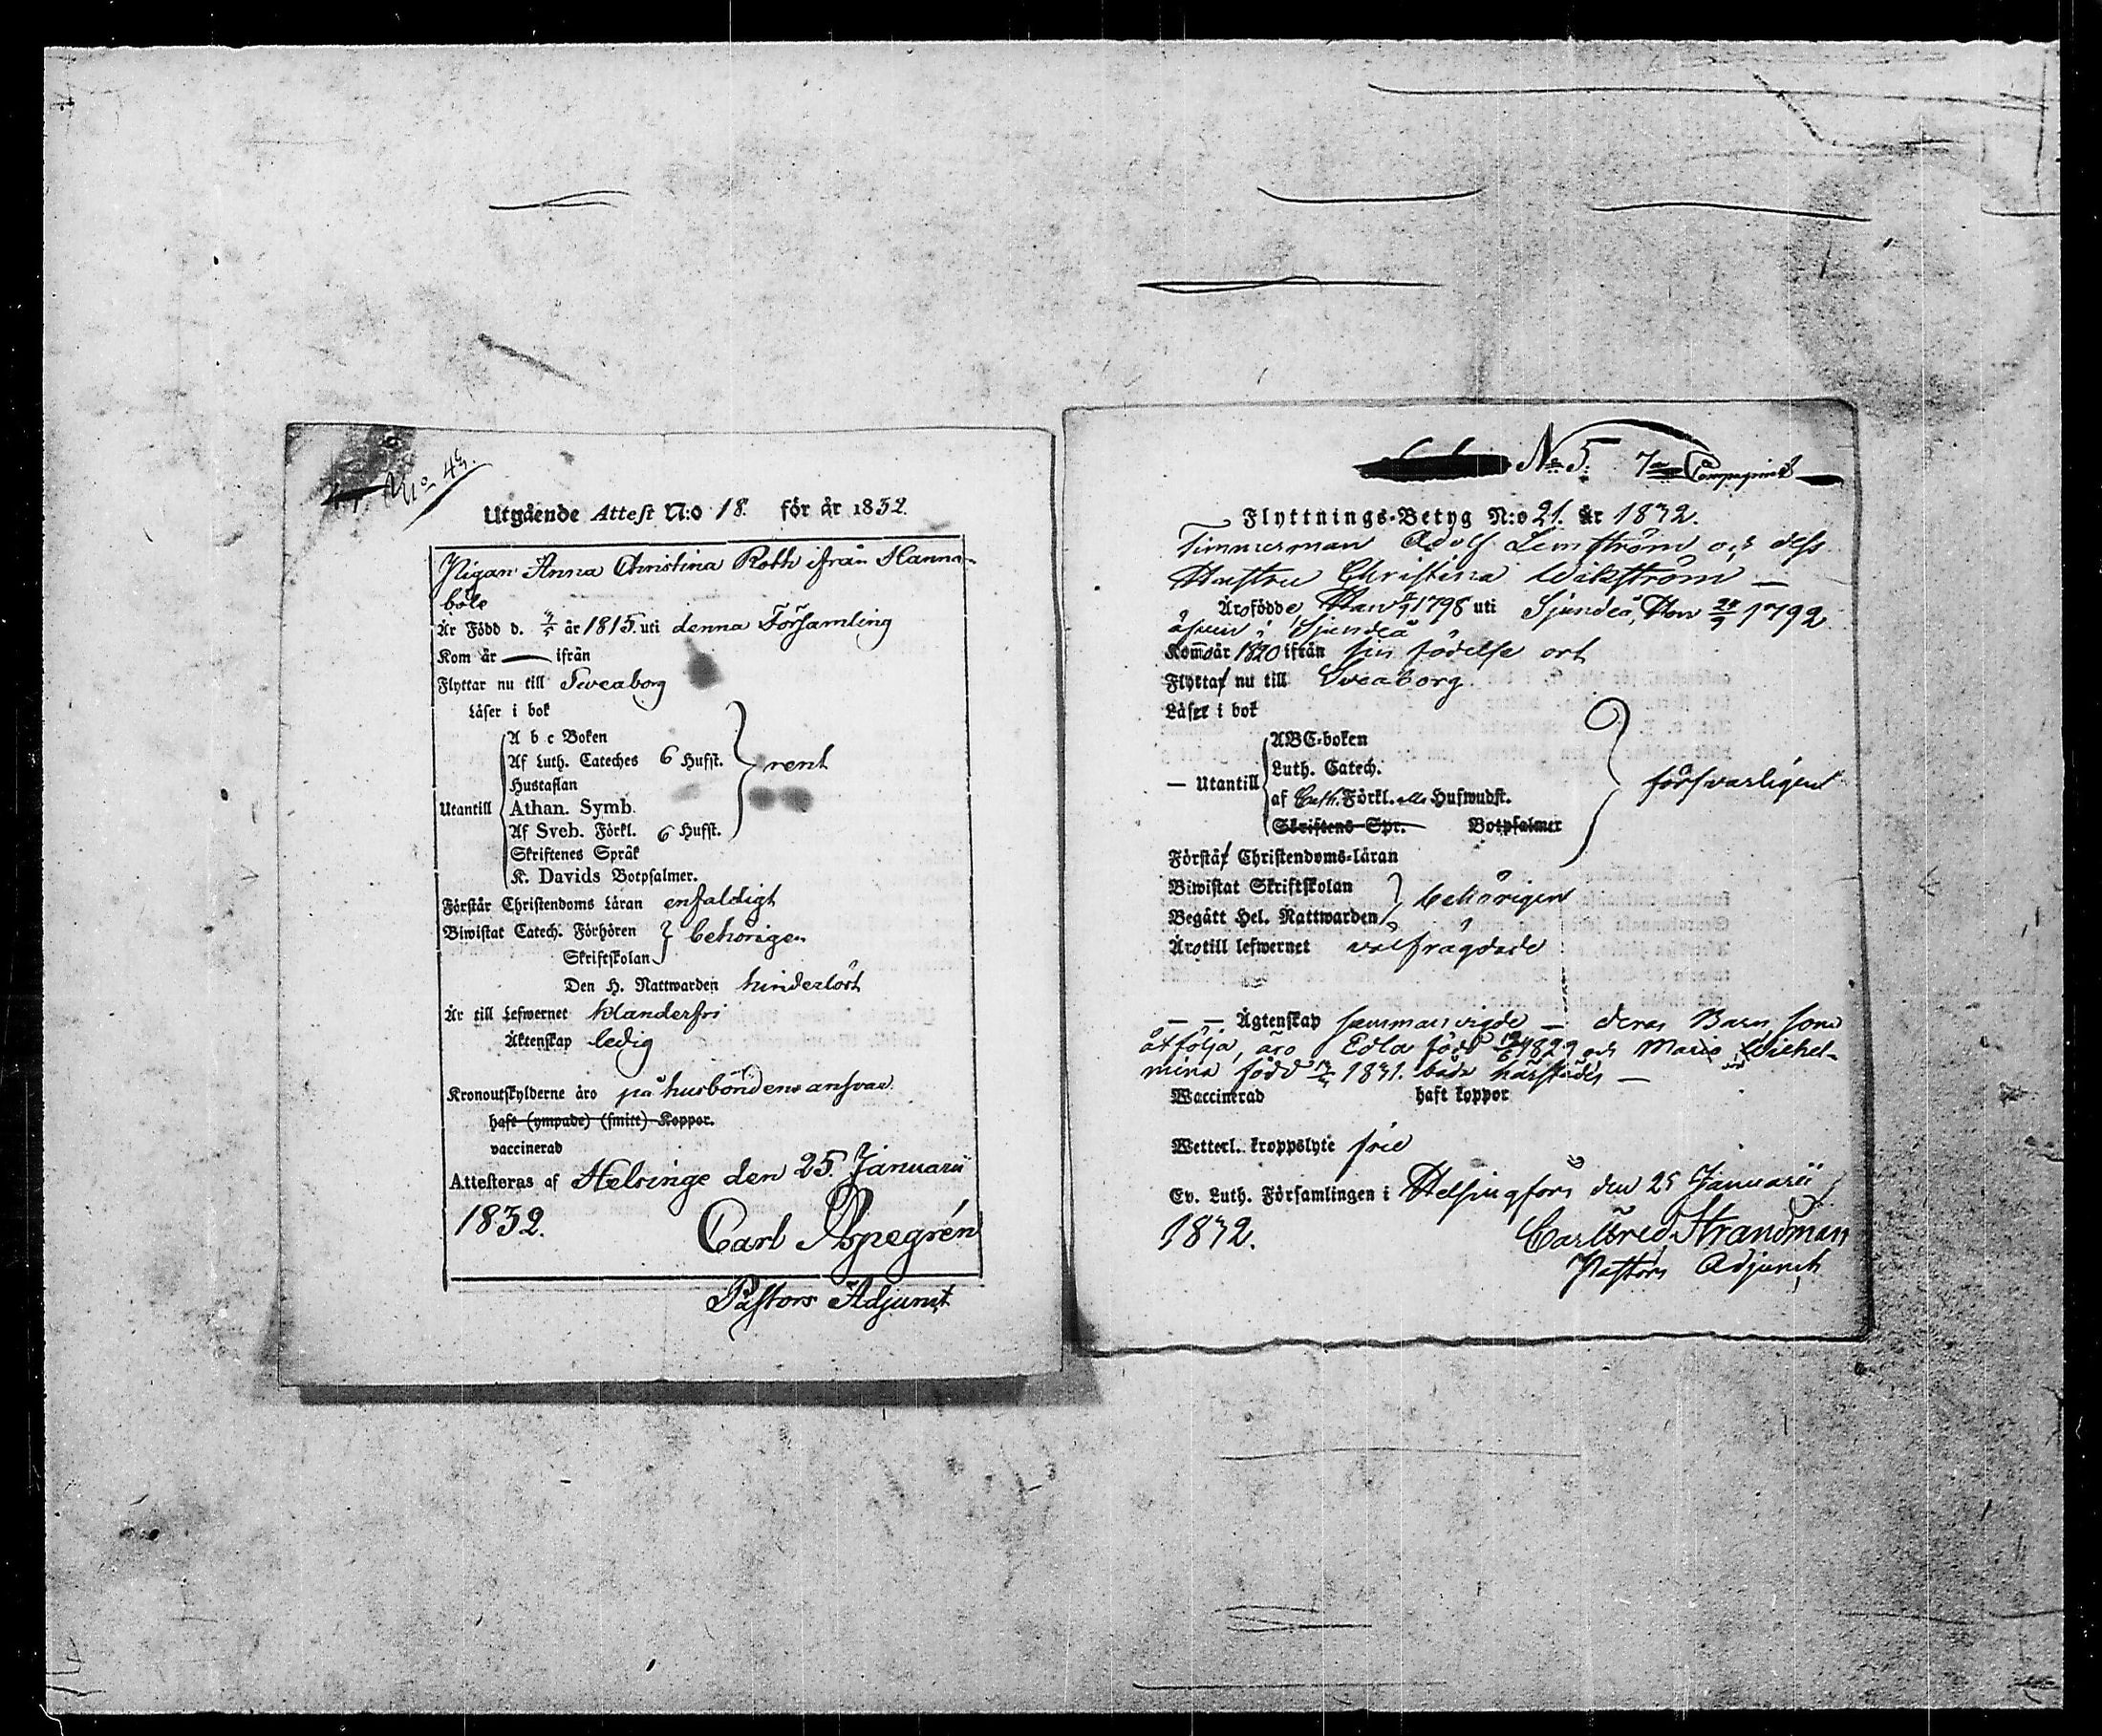 No 43.
Utgående Attest N:o 18. för år 1832.
Pigan Anna Christina Roth ifrån Hanna-
böle
Är Född d. 4/5 år 1815. uti denna Församling
Kom år — ifrån
Flyttar nu till Sveaborg
Läser i bok
A b c Boken
Af Luth. Cateches 6 Hufst.
Hustaflan
rent
Utantill
Athan. Symb.
Af Sveb. Förkl. 6 Hufst.
Skriftenes Språk
K. Davids Botpsalmer.
Förstår Christendoms Läran enfaldigt
Biwistat Catech. Förhören
behörigen
Skriftskolan
Den H. Nattwarden hinderlöst
Är till Lefwernet klanderfri
Äktenskap ledig
Kronoutskylderne äro på husbondens answar.
haft (ympade) (smitt) Koppor.
vaccinerad
Attesteras af Helsinge den 25. Januarii
1832.
Carl Aspegrén
Pastors Adjunct
No 5. 7de Compagniet
Flyttnings-Betyg N:o 21. år 1832.
Timmerman Adolf Lemström och dess
Hustru Christina Wikström —
Äro födde, Han 1798 uti Sjundeå, Hon 1792
även i Sjundeå
Kommo år 1820 ifrån sin födelse ort
Flytta nu till Sveaborg.
Läser i bok
ABC-boken
Luth. Catech.
— Utantill
försvarligen
af Luth. Förkl. alla Hufwudst.
Skriftens Spr. Botpsalmer
Förstå Christendoms-läran
Biwistat Skriftskolan
behörigen
Begått Hel. Nattwarden
Äro till lefwernet välfrägdade
— — Ägtenskap sammanvigde — deras Barn, som
åtfölja, äro Edla född 1829 och Maria Wilhel-
mina född 1831. både härstädes —
Waccinerad haft koppor
Wetterl. kroppslyte frie
Ev. Luth. Församlingen i Helsingfors den 25 Januarii
1832.
Carl Fred. Strandman
Pastors Adjunct